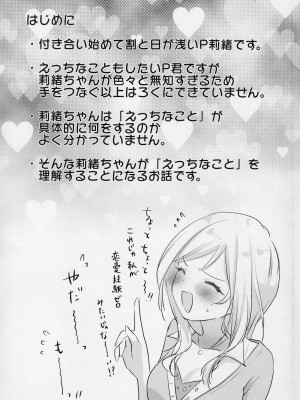 はじめに
・付き合い始めて割と日が浅いP莉緒です。
・えっちなこともしたいP君ですが
莉緒ちゃんが色々と無知すぎるため
手をつなぐ以上はろくにできていません。
・莉緒ちゃんは「えっちなこと」が
具体的に何をするのか
よく分かっていません。
・そんな莉緒ちゃんが「えっちなこと」を
理解することになるお話です。
ちょっとちょっと〜
これじゃ私が
恋愛経験ゼロ
みたいじゃな〜い!!
やだ〜〜
も〜〜